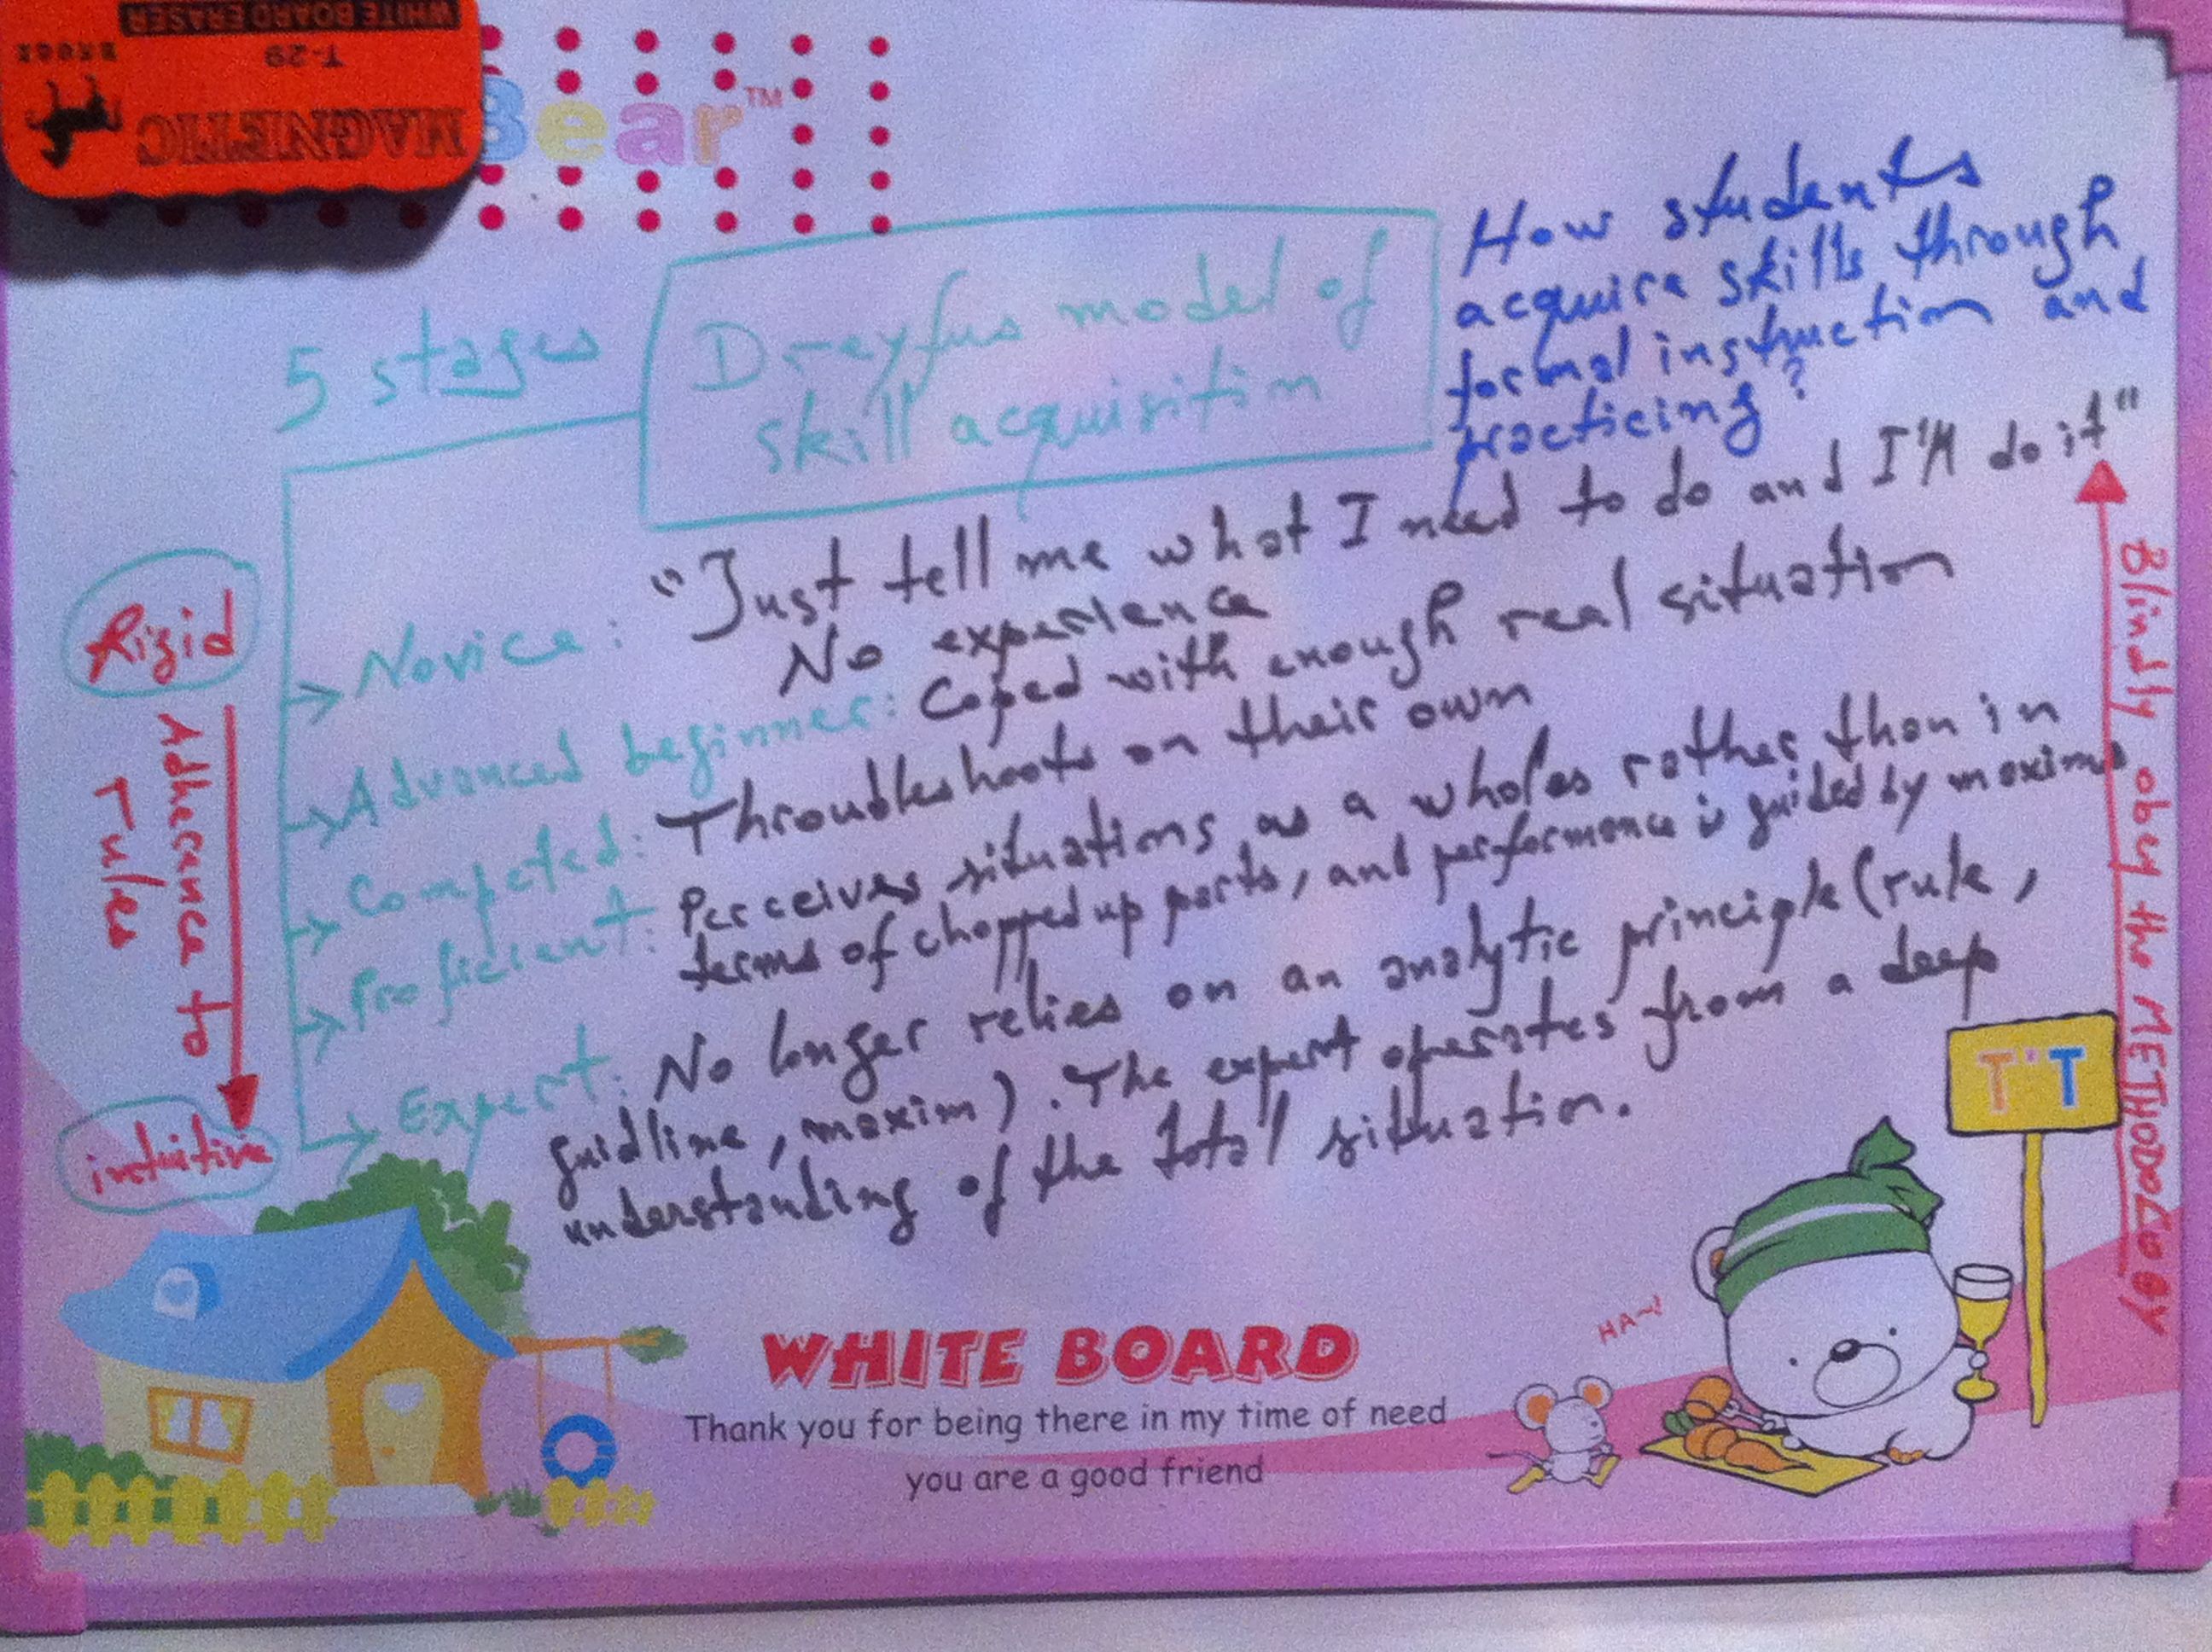 WHITE BOARD ERASER
T-29
MAGNETIC
Bear™
5 stages
Dreyfus model of
skill acquisition
How students
acquire skills through
formal instruction and
practicing?
Novice: "Just tell me what I need to do and I'll do it"
No experience
Advanced beginner: Coped with enough real situation
Competed: Throubleshoots on their own
Proficient: Perceives situations as a wholes rather than in
terms of chopped up parts, and performance is guided by maxims
Expert: No longer relies on an analytic principle (rule,
guidline, maxim). The expert operates from a deep
understanding of the total situation.
Rigid
Adherence to
rules
intuitive
Blindly obey the METHODOLOGY
T T
HA~!
WHITE BOARD
Thank you for being there in my time of need
you are a good friend